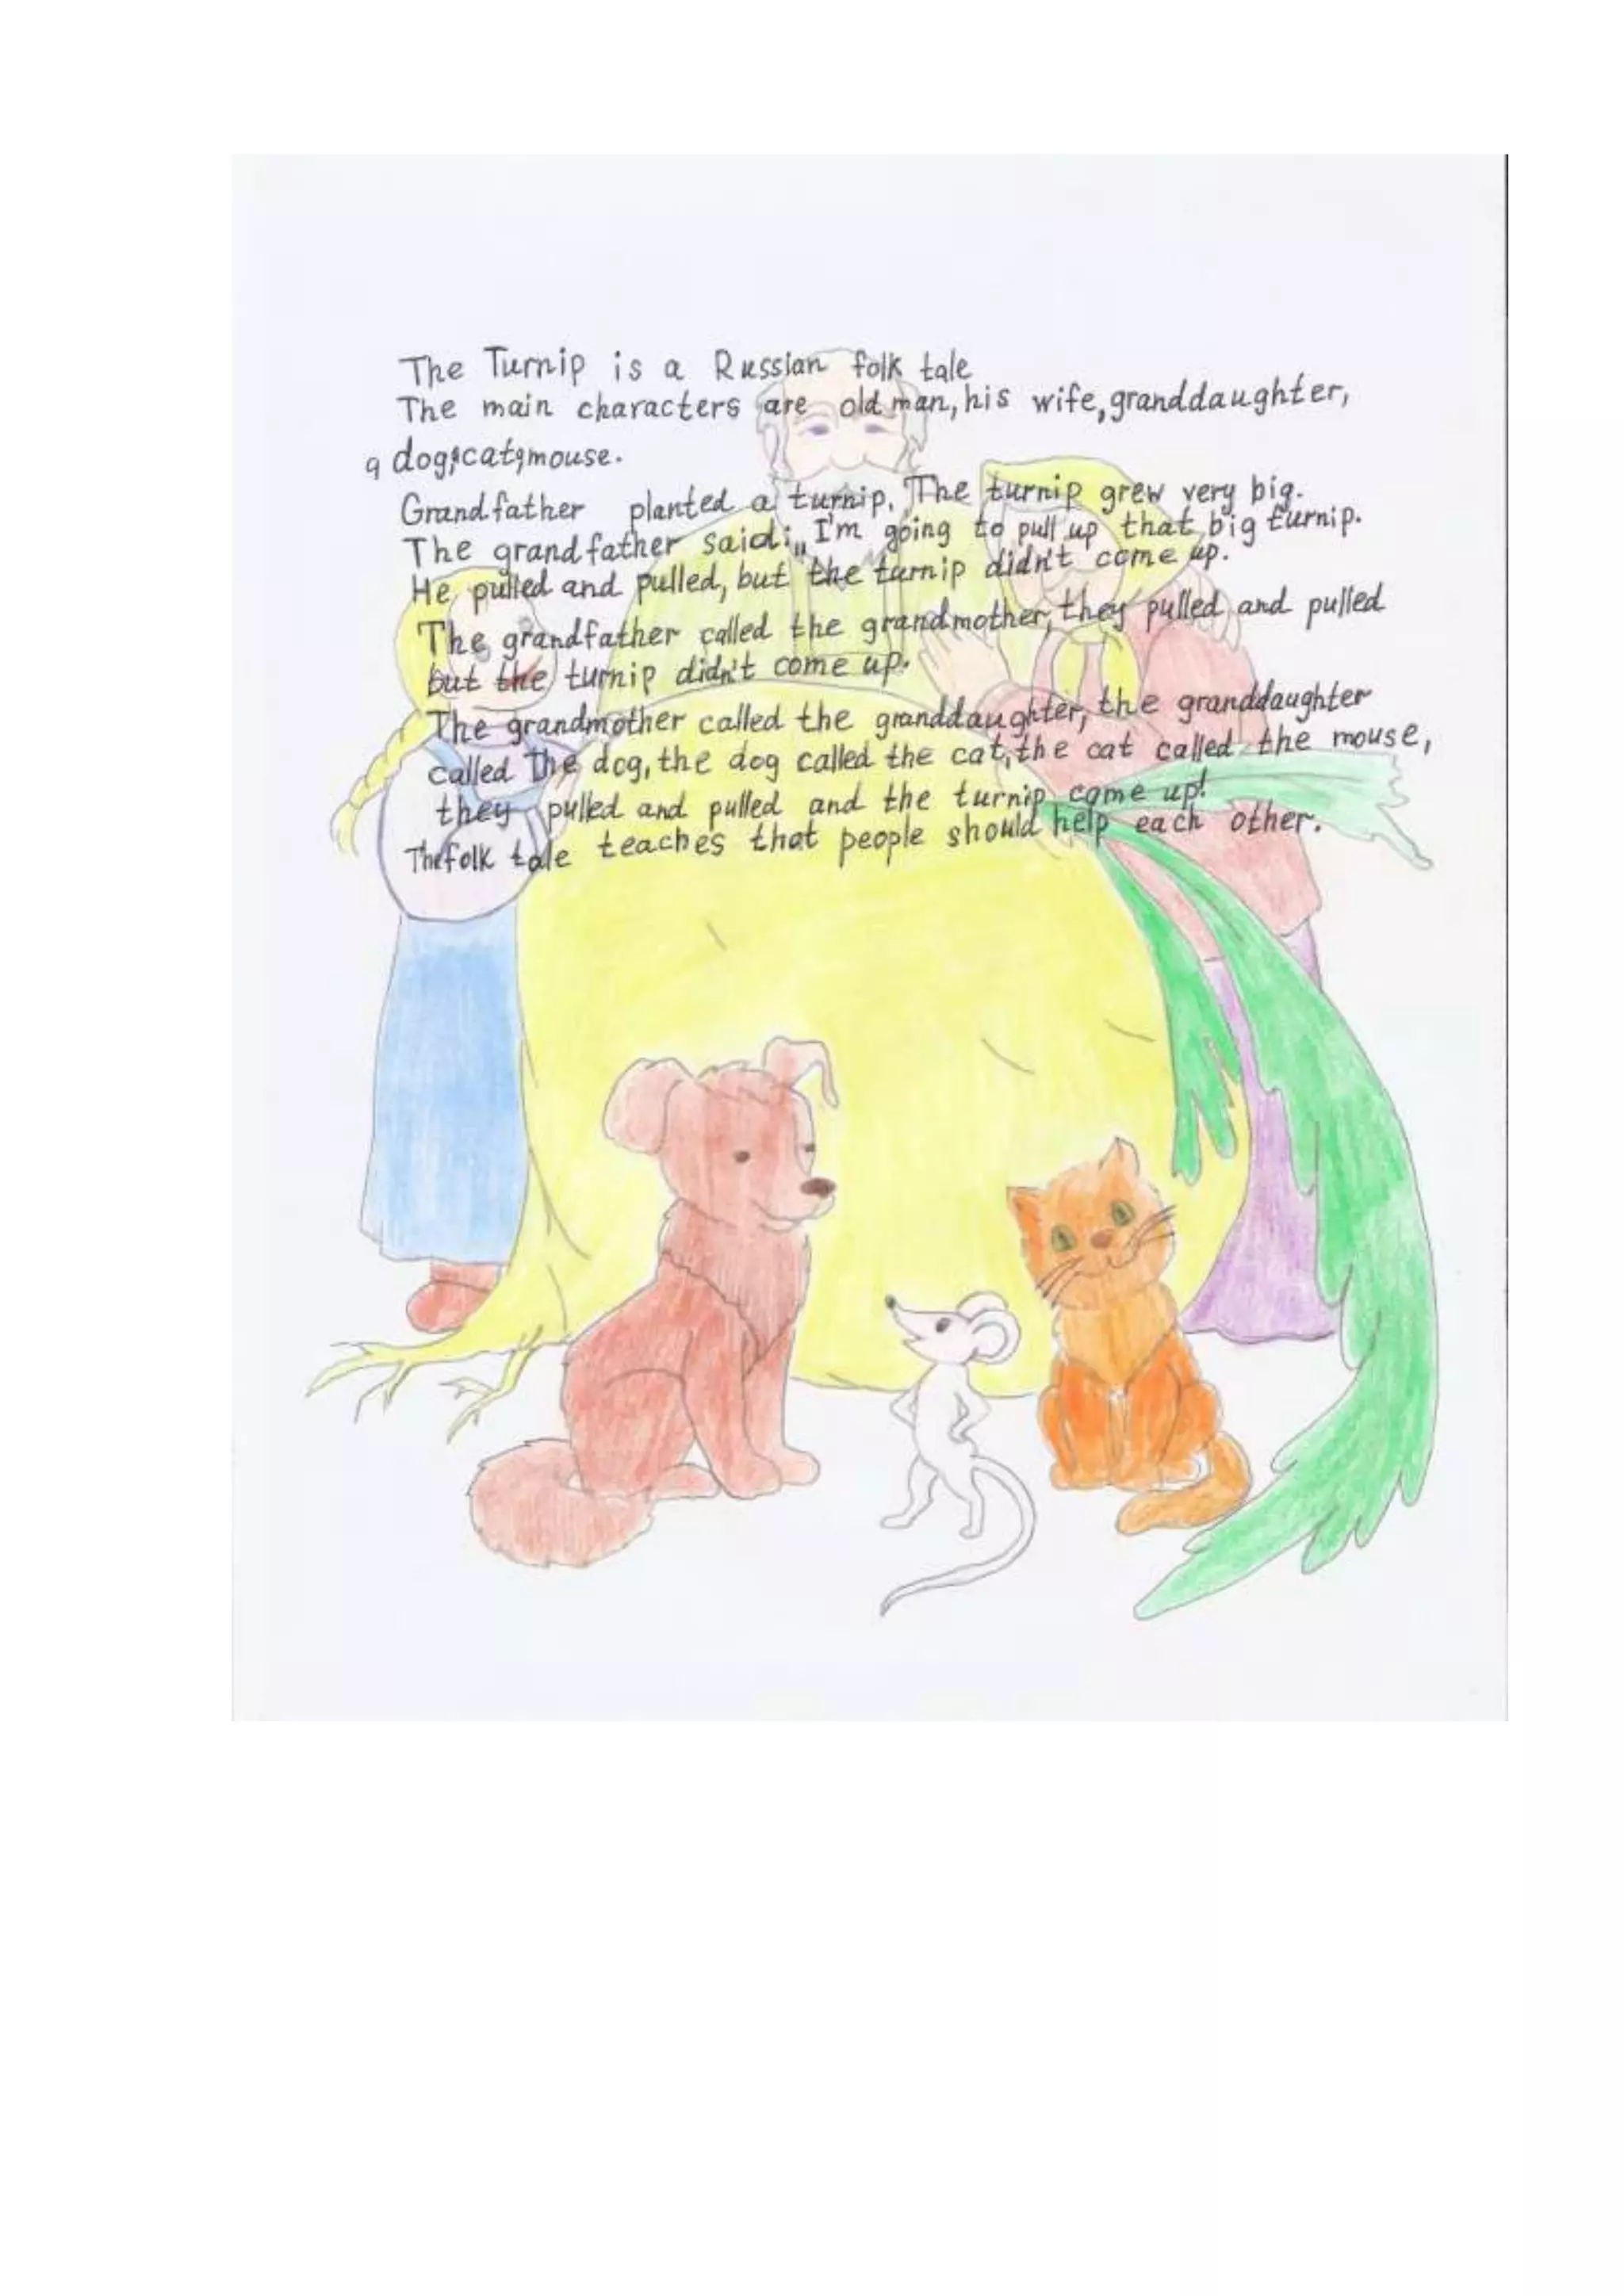 The Turnip is a Russian folk tale
The main characters are old man, his wife, granddaughter,
a dog, a cat, a mouse.
Grandfather planted a turnip. The turnip grew very big.
The grandfather said: „I'm going to pull up that big turnip.
He pulled and pulled, but the turnip didn't come up.
The grandfather called the grandmother, they pulled and pulled
but the turnip didn't come up.
The grandmother called the granddaughter, the granddaughter
called the dog, the dog called the cat, the cat called the mouse,
they pulled and pulled and the turnip came up!
The folk tale teaches that people should help each other.